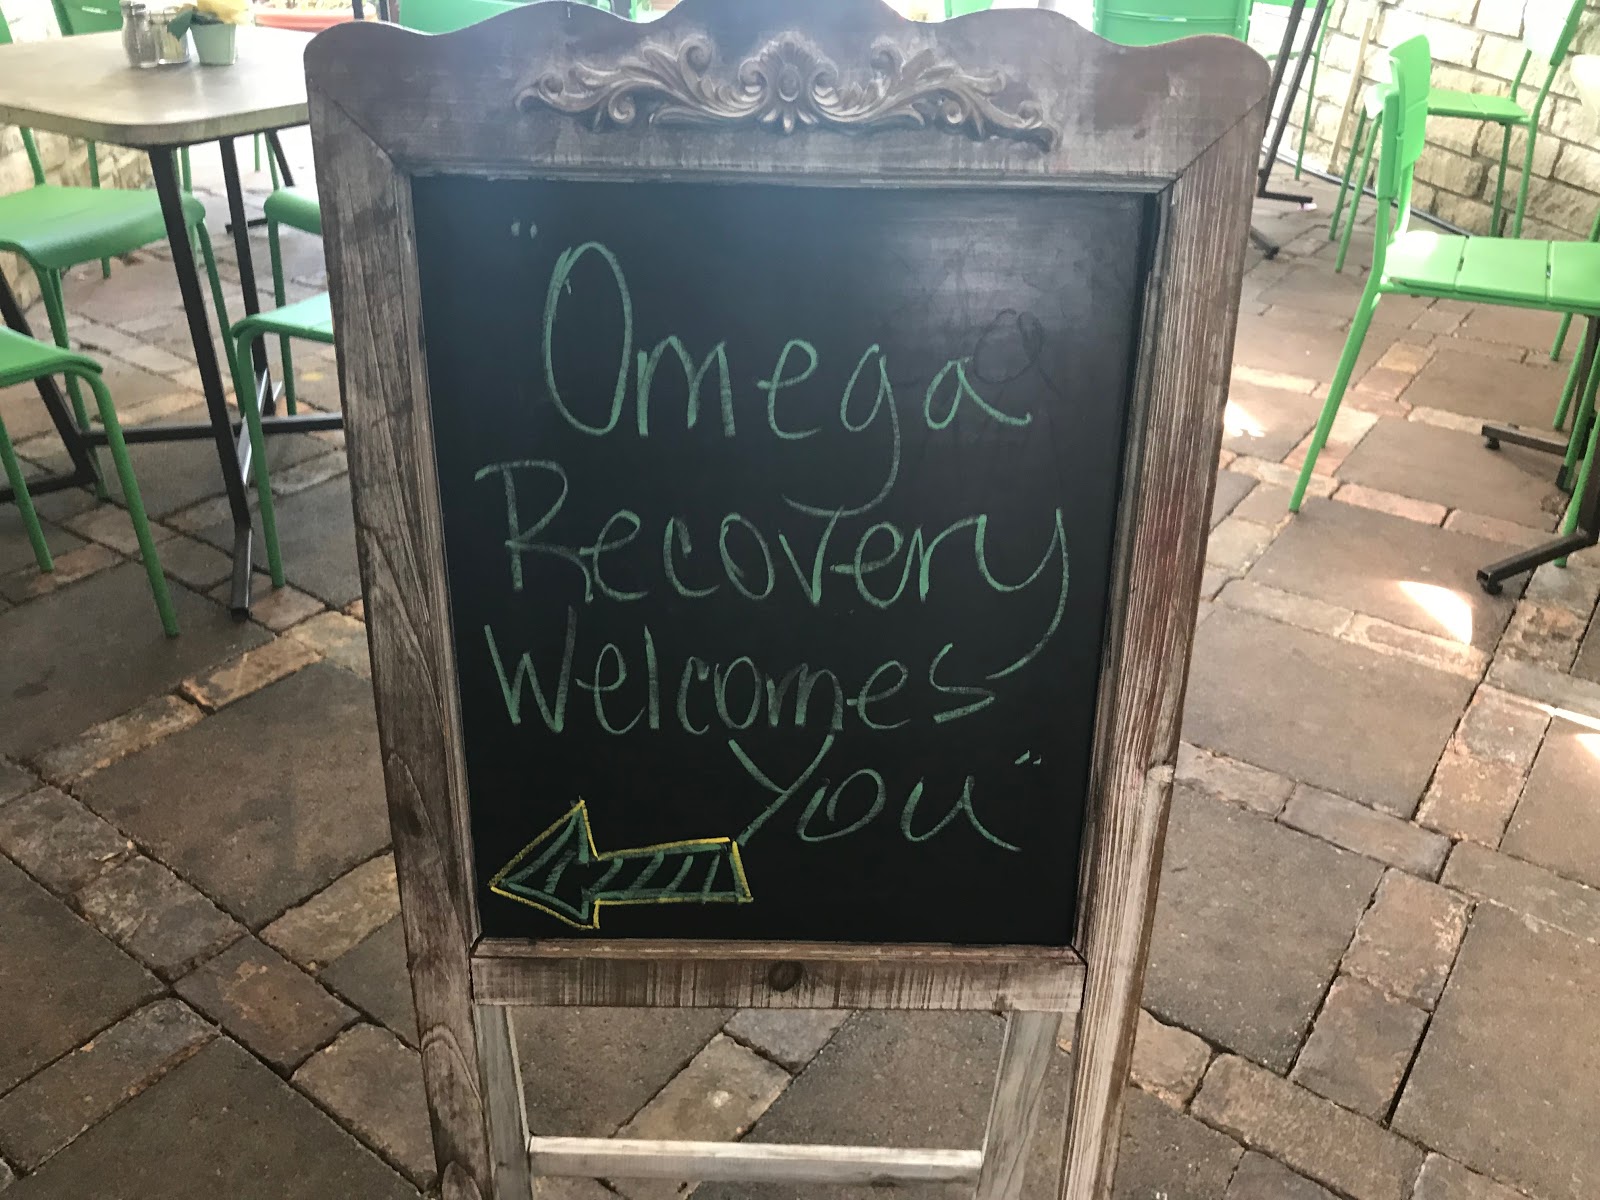 "Omega
Recovery
Welcomes
You"